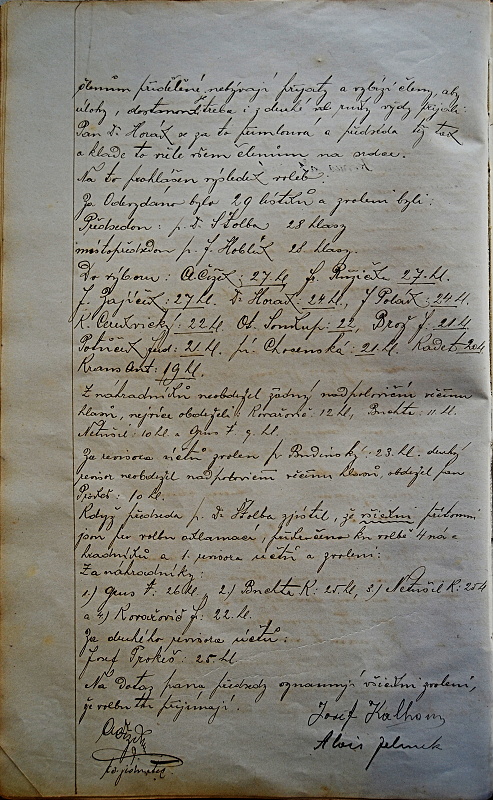 členům přidělené nebývají přijaty a vybízí členy, aby
úlohy, dostanou-li třeba i z druhé neb ruky vždy přijali.
Pan Dr Horák se za to přimlouvá a předseda též tak
a klade to vřele všem členům na srdce.
Na to prohlášen výsledek voleb.
Odevzdáno bylo 29 lístků a zvoleni byli:
Předsedou: p. Dr Stolba 28 hlasy
místopředsedou p. J. Hoblík 28 hlasy.
Do výboru: A. Čížek: 27 hl, Fr. Růžička 27. hl.
J. Zajíček: 27 hl. Dr Horák: 24 hl, J Polák: 24 hl.
K. 22 hl. Ot. Soukup: 22, Brož J: 21 hl
Potůček Lud: 21 hl. pí. Chocenská: 21. hl. Kadet 20 hl
Kraus Ant: 19 hl.
Z náhradníků neobdržel žádný nadpoloviční většinu
hlasů, nejvíce obdrželi: Kovařovič 12 hl, Buchta: 11 hl.
Netušil: 10 hl. a Grus F. 9. hl.
Za revisora účtů zvolen p. Budínský: 23. hl. druhý
revisor neobdržel nadpoloviční většinu hlasů, obdržel pan
Prokeš: 10 hl.
Když předseda p. Dr. Stolba zjistil, že všichni přítomní
jsou pro volbu aklamací, přikročeno ku volbě 4 ná-
hradníků a 1. revisora účtů a zvoleni:
Za náhradníky:
1.) Grus F. 26 hl, 2.) Buchta K: 25. hl, 3.) Netušil K: 25 hl
a 4.) Kovařovič J: 22. hl.
Za druhého revisora účtů:
Josef Prokeš: 25. hl.
Na dotaz pana předsedy oznamují všichni zvolení,
že volbu tu přijímají.
Josef
Alois
t. č. jednatel.